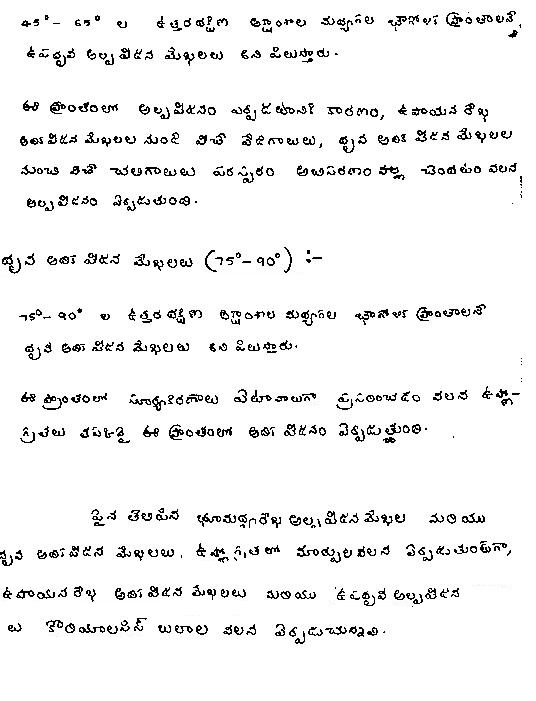 45°- 65° ల ఉత్తర దక్షిణ అక్షాంశాల మధ్యగల భౌగోళిక ప్రాంతాలనే,
ఉపధృవ అల్పపీడన మేఖలలు అని పిలుస్తారు.
ఈ ప్రాంతంలో అల్పపీడనం ఏర్పడటానికి కారణం, ఉపాయన రేఖ
అధిపీడన మేఖలల నుండి వీచే వేడిగాలులు, ధృవ అధిపీడన మేఖలల
నుంచి వీచే చలిగాలులు పరస్పరం అభిసరణం వల్ల చెందటం వలన
అల్పపీడనం ఏర్పడుతుంది.
ధృవ అధిపీడన మేఖలలు (75°-90°) :-
75°-90° ల ఉత్తర దక్షిణ అక్షాంశాల మధ్యగల భౌగోళిక ప్రాంతాలనే
ధృవ అధిపీడన మేఖలలు అని పిలుస్తారు.
ఈ ప్రాంతంలో సూర్యకిరణాలు ఏటవాలుగా ప్రసరించడం వలన ఉష్ణో-
గ్రతలు తగ్గి ఈ ప్రాంతంలో అధిపీడనం ఏర్పడుతుంది.
పైన తెలిపిన భూమధ్యరేఖ అల్పపీడన మేఖల మరియు
ధృవ అధిపీడన మేఖలలు, ఉష్ణోగ్రతలో మార్పుల వలన ఏర్పడుతుండగా,
ఉపాయన రేఖ అధిపీడన మేఖలలు మరియు ఉపధృవ అల్పపీడన
లు కొరియాలసిస్ బలాల వలన ఏర్పడుచున్నవి.